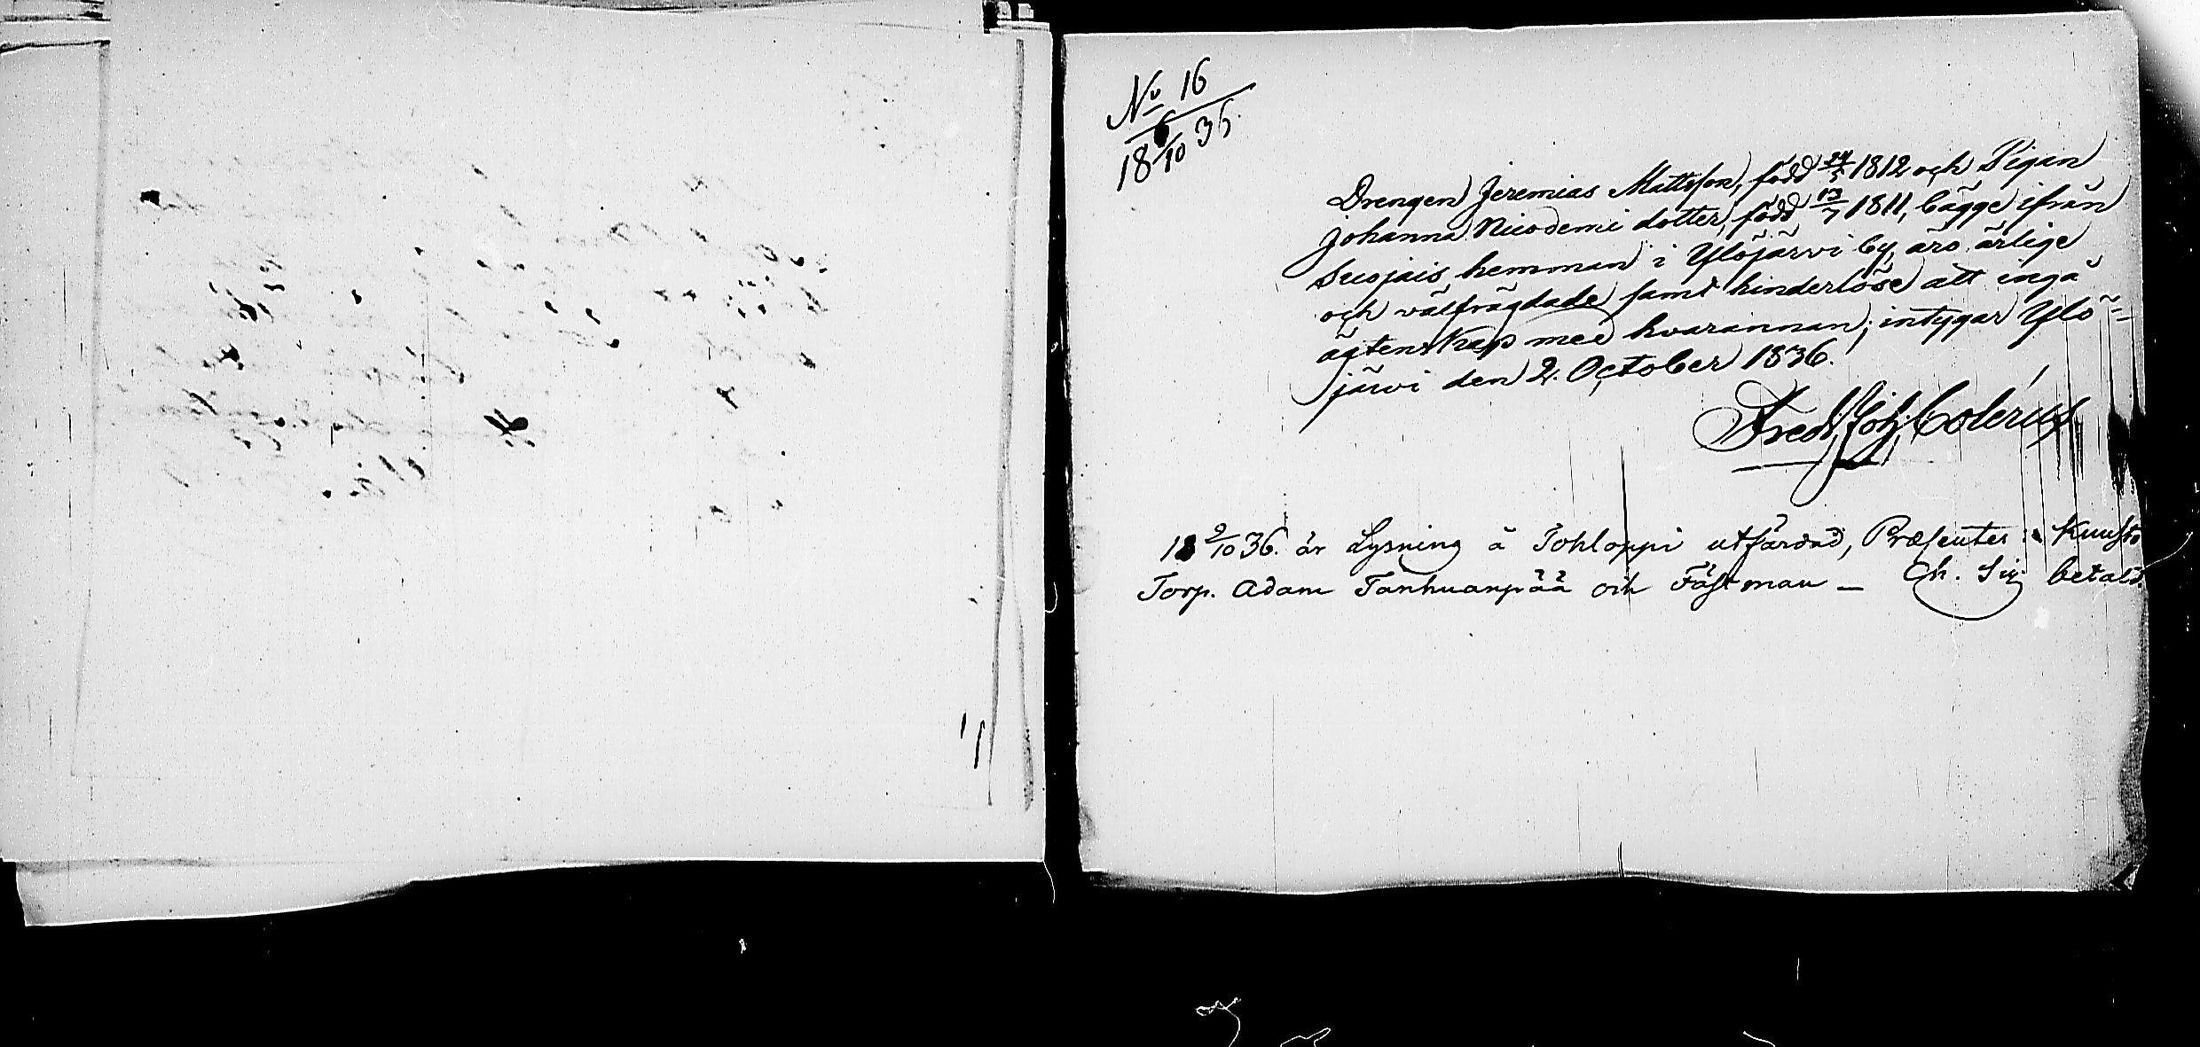 No 16
18 6/10 36.
Drengen Jeremias Mattsson, född 24/5 1812 och Pigan
Johanna Nicodemi dotter, född 13/7 1811, bägge ifrån
Suojais hemman i Ylöjärvi by, äro ärlige
och välfrägdade samt hinderlöse att ingå
ägtenskap med hvarannan; intygar Ylö=
järvi den 2. October 1836.
Fred. Joh. Colérus
18 2/10 36. är Lysning å Tohloppi utfärdad, Præsentes: Kuusto
Torp. Adam Tanhuanpää och Fästman — betald.